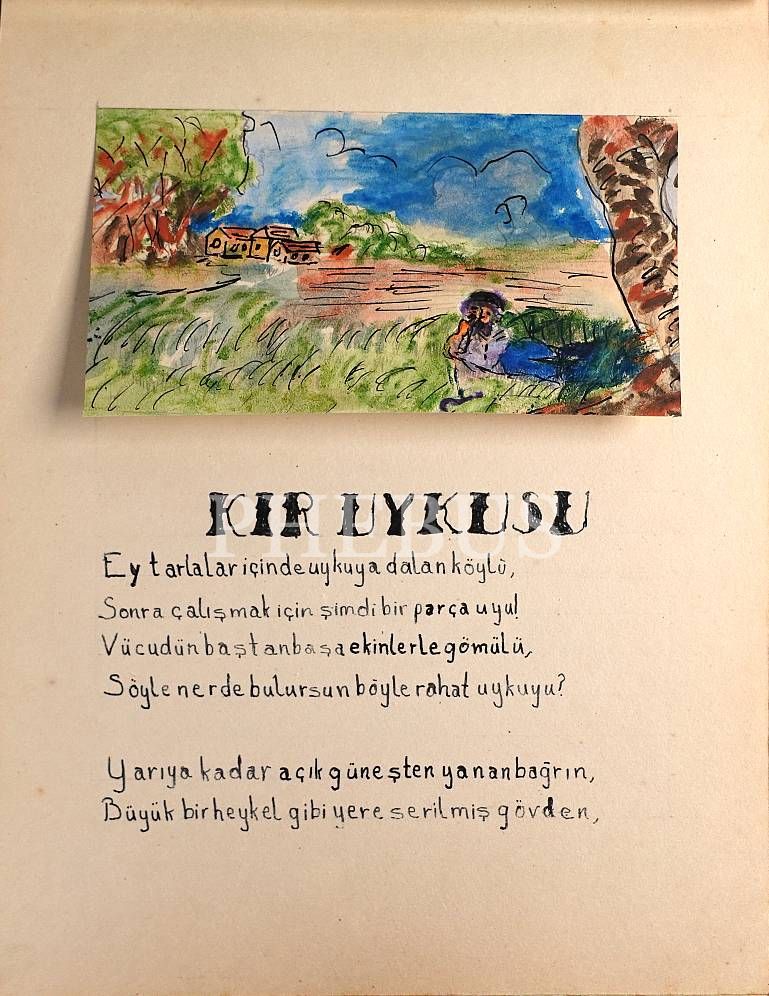 KIR UYKUSU
PHEBUS
Ey tarlalar içinde uykuya dalan köylü,
Sonra çalışmak için şimdi bir parça uyu!
Vücudün baştanbaşa ekinlerle gömülü,
Söyle nerde bulursun böyle rahat uykuyu?
Yarıya kadar açık güneşten yanan bağrın,
Büyük bir heykel gibi yere serilmiş gövden,